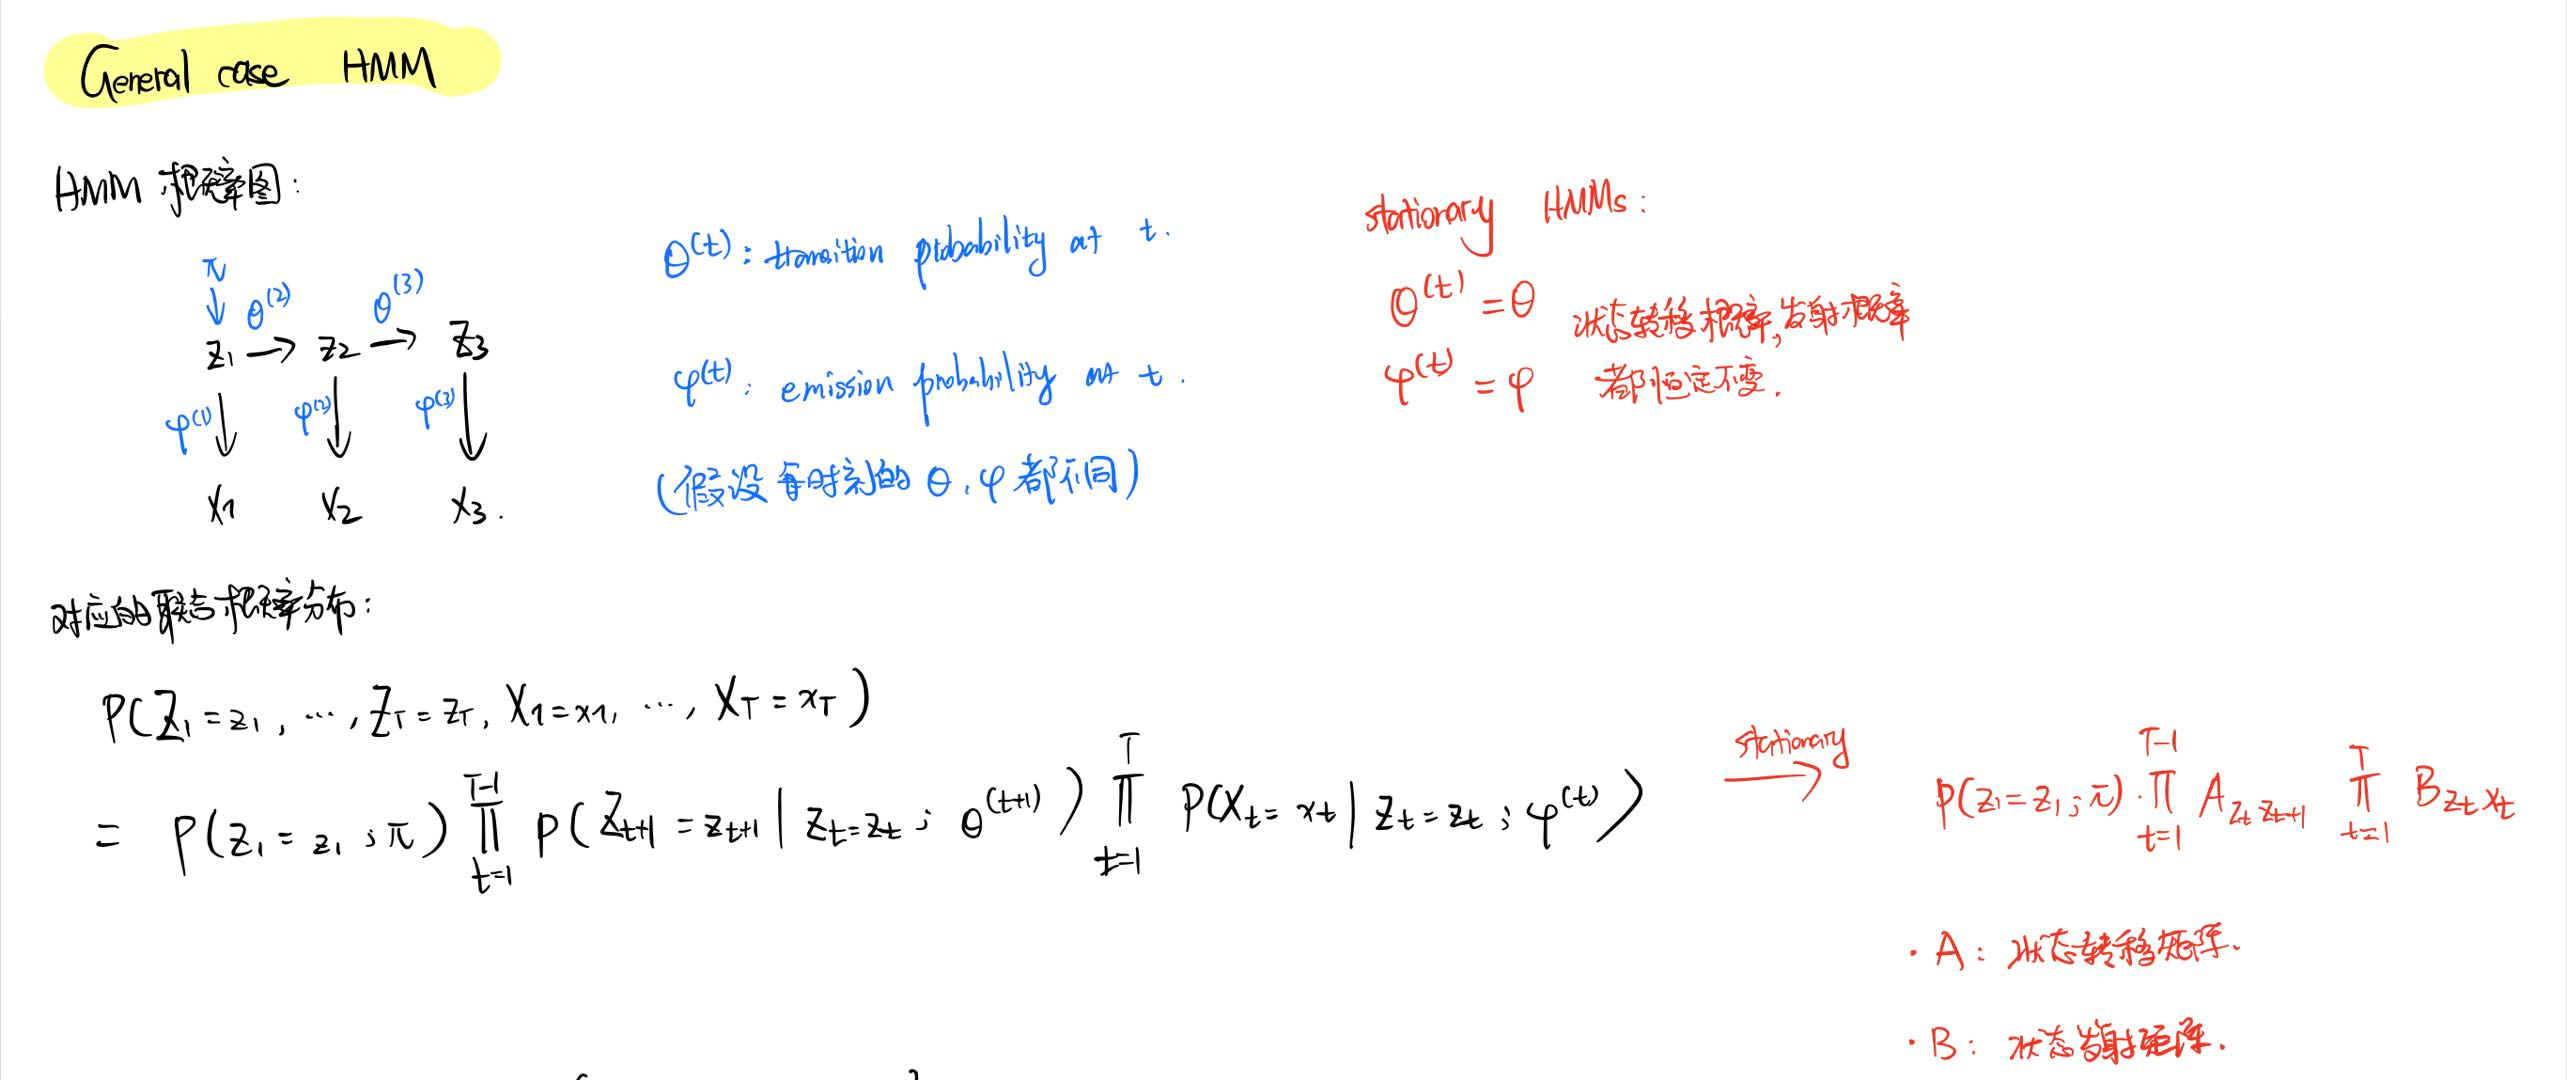 General case HMM
HMM 概率图：
π
θ^(2) θ^(3)
z₁ → z₂ → z₃
φ^(1) φ^(2) φ^(3)
x₁ x₂ x₃ .
θ^(t)：transition probability at t.
φ^(t)：emission probability at t.
（假设每时刻的 θ, φ 都不同）
stationary HMMs：
θ^(t) = θ 状态转移概率，发射概率
φ^(t) = φ 都恒定不变.
对应的联合概率分布：
P(Z₁ = z₁, ⋯, Z_T = z_T, X₁ = x₁, ⋯, X_T = x_T)
= P(z₁ = z₁ ; π) ∏_{t=1}^{T-1} P(Z_{t+1} = z_{t+1} | z_t = z_t ; θ^(t+1)) ∏_{t=1}^{T} P(X_t = x_t | z_t = z_t ; φ^(t))
stationary →
P(z₁ = z₁ ; π) · ∏_{t=1}^{T-1} A_{z_t z_{t+1}} ∏_{t=1}^{T} B_{z_t x_t}
· A：状态转移矩阵.
· B：状态发射矩阵.